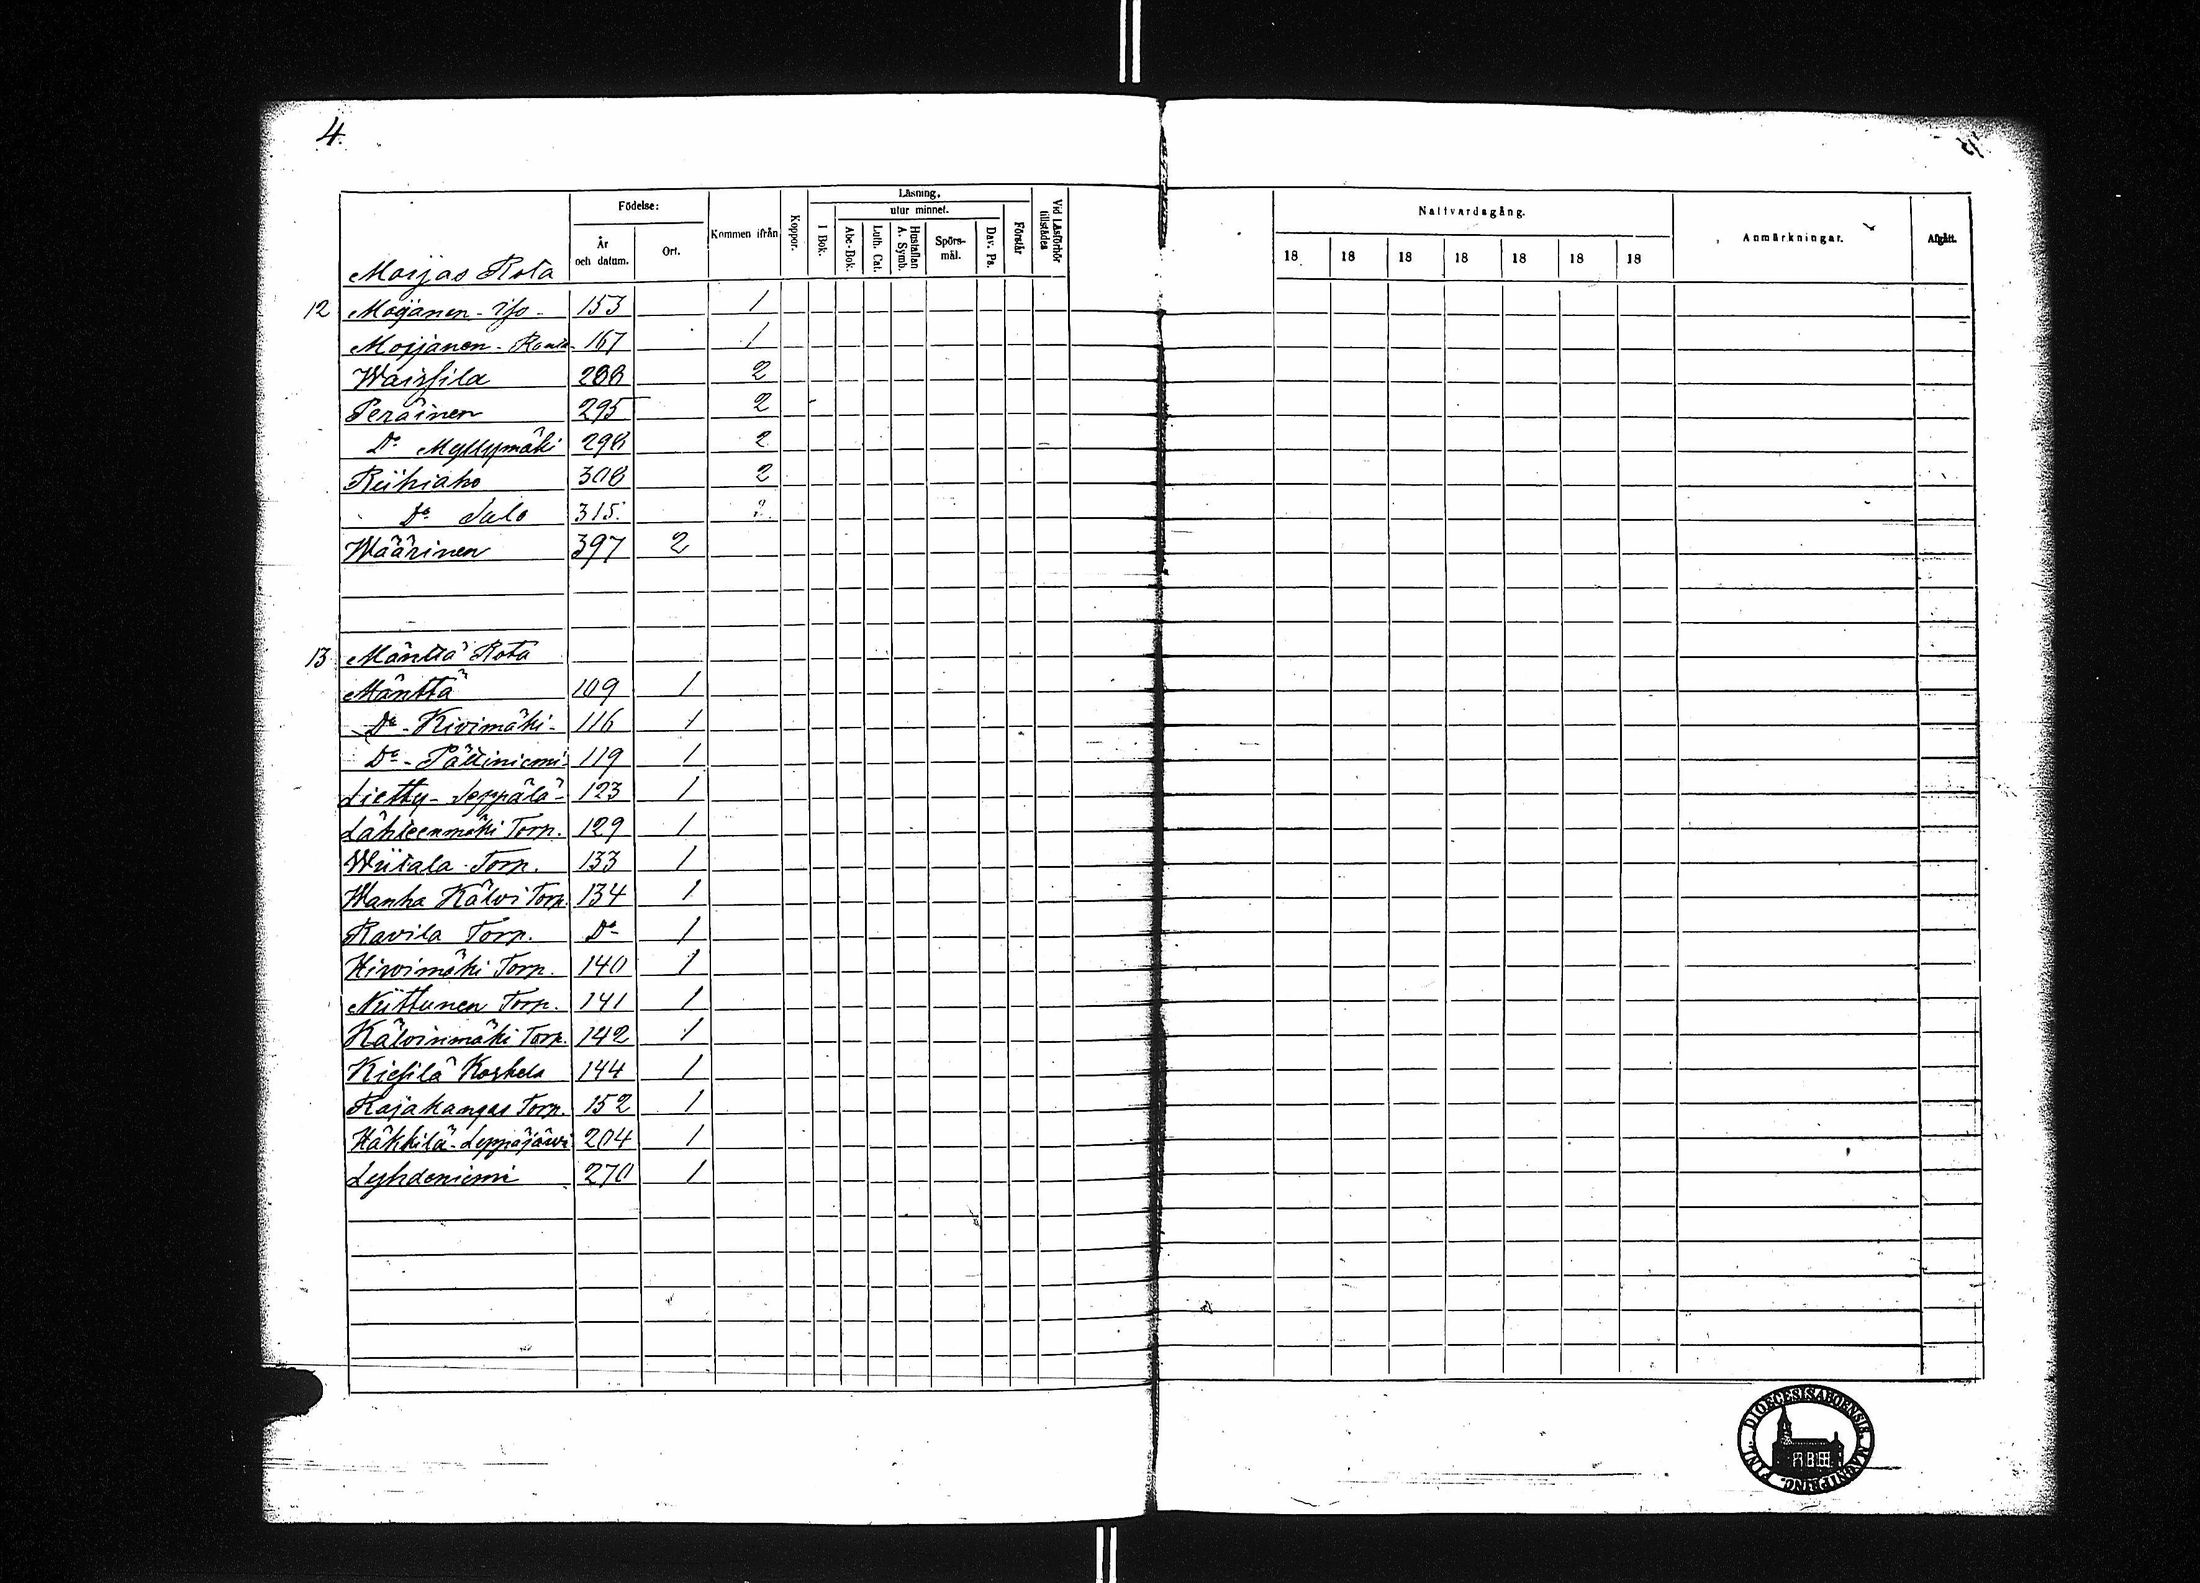 4.
Födelse:
Läsning,
utur minnet.
År och datum.
Ort.
Kommen ifrån
Koppor.
I Bok.
Abc-Bok.
Luth. Cat.
Hustaflan A. Symb.
Spörsmål.
Dav. Ps.
Förstår
Vid Läsförhör tillstädes
Nattvardsgång.
18 18 18 18 18 18 18
Anmärkningar.
Afgått.
Moijas Rota
12 Moijanen - iso - 153 1
Moijanen - Ranta - 167 1
Waissila 288 2
Peräinen 295 2
D:o Myllymäki 298 2
Riihiaho 308 2
D:o Salo 315. 2.
Wäärinen 397 2
13 Mänttä Rota
Mänttä 109 1
D:o - Kivimäki - 116 1
D:o - Pättiniemi - 119 1
Lietty - Seppälä - 123 1
Lähteenmäki Torp. 129 1
Wiitala Torp. 133 1
Wanha Kälvi Torp. 134 1
Ravila Torp. D:o 1
Hirvimäki Torp. 140 1
Niittunen Torp. 141 1
Kälvinmäki Torp. 142 1
Kiesilä Koskela 144 1
Rajakangas Torp. 152 1
Häkkilä - Leppäjärvi 204 1
Lyhdeniemi 270 1
DIOECESIS ABOENSIS. MAGNI PRINC. FINL.